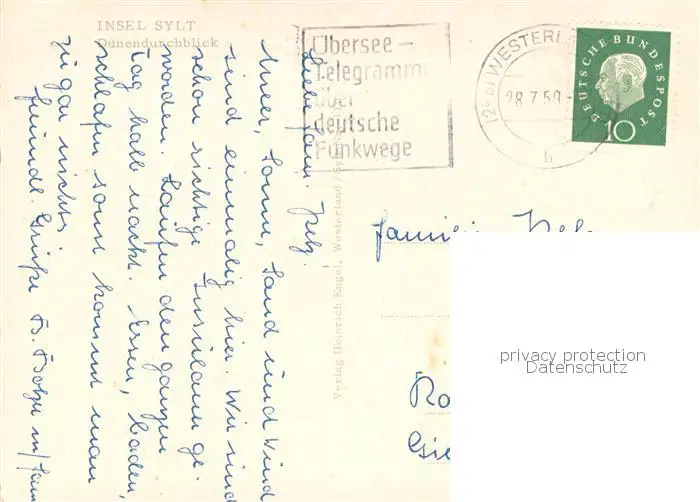 INSEL SYLT
Dünendurchblick
Übersee-
Telegramme
über
deutsche
Funkwege
(24b) WESTERL
28.7.59-
b
DEUTSCHE BUNDESPOST
10
Liebe Fam. Pelz.
Meer, Sonne, Sand und Wind
sind einmalig hier. Wir sind
schon richtige Insulaner ge-
worden. Laufen den ganzen
Tag halb nackt. Essen, baden,
schlafen sonst kommt man
zu gar nichts.
freundl. Grüße
Verlag Heinrich Engel, Westerland/Sylt
Familie Pelz
Ro
Gie
privacy protection
Datenschutz